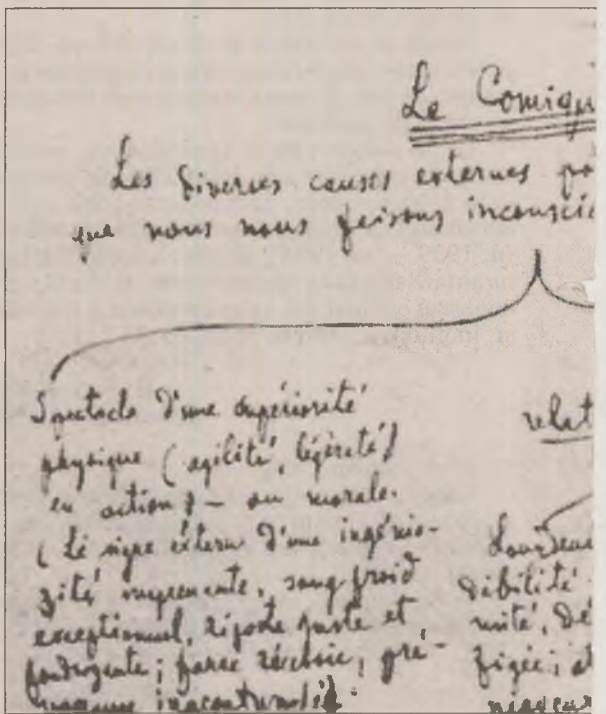 Le Comiqu
Les diverses causes externes po
que nous nous faisons inconscie
Spectacle d'une supériorité
physique (agilité, légèreté)
en action) – ou morale.
(Le signe externe d'une ingénio-
sité surprenante, sang froid
exceptionnel, riposte juste et
foudroyante; farce réussie, pré-
inaccoutumée
relat
Lourdeu
débilité
mité, dé
figée; a